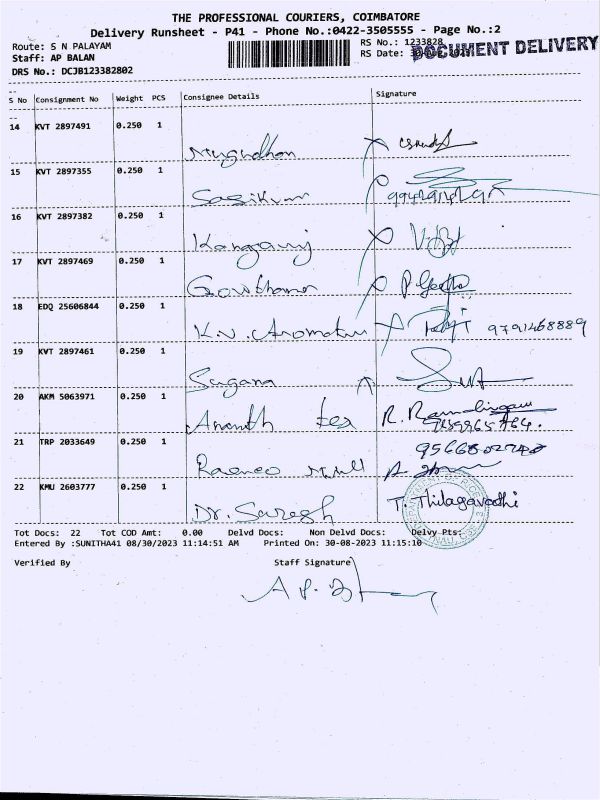 THE PROFESSIONAL COURIERS, COIMBATORE
Delivery Runsheet - P41 - Phone No.:0422-3505555 - Page No.:2
Route: S N PALAYAM
Staff: AP BALAN
DRS No.: DCJB123382802
RS No.: 1233828
RS Date:
DOCUMENT DELIVERY
S No Consignment No Weight PCS Consignee Details Signature
14 KVT 2897491 0.250 1
15 KVT 2897355 0.250 1
Sasikum
16 KVT 2897382 0.250 1
17 KVT 2897469 0.250 1
Gowthama P Geetha
18 EDQ 25606844 0.250 1
K.V. 9791468889
19 KVT 2897461 0.250 1
Sugana
20 AKM 5063971 0.250 1
Ananth tex R. Ramalingam
21 TRP 2033649 0.250 1
22 KMU 2603777 0.250 1
Dr. Suresh T. Thilagavadhi
Tot Docs: 22 Tot COD Amt: 0.00 Delvd Docs: Non Delvd Docs: Delvy Pts:
Entered By :SUNITHA41 08/30/2023 11:14:51 AM Printed On: 30-08-2023 11:15:10
Verified By Staff Signature